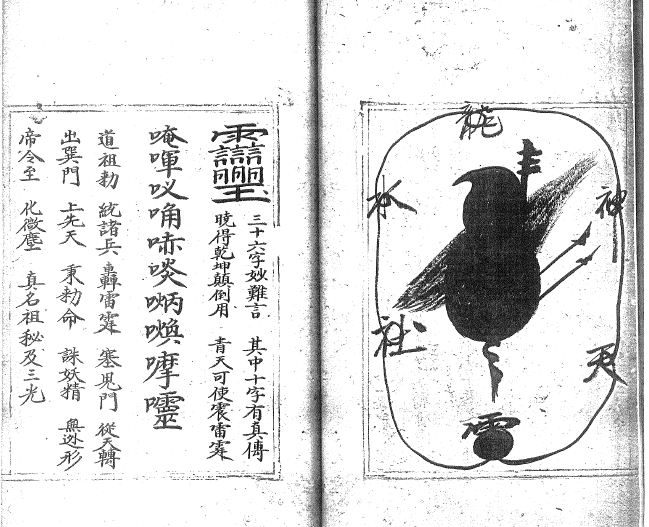 龍
神
水
天
社
三十六字妙難言 其中十字有真傳
曉得乾坤顛倒用 青天可使震雷霆
唵喗哧啖嘙
道祖勅 統諸兵 轟雷霆 塞鬼門 從天轉
出巽門 上先天 秉勅命 誅妖精 無迯形
帝令至 化微塵 真名祖秘及三光